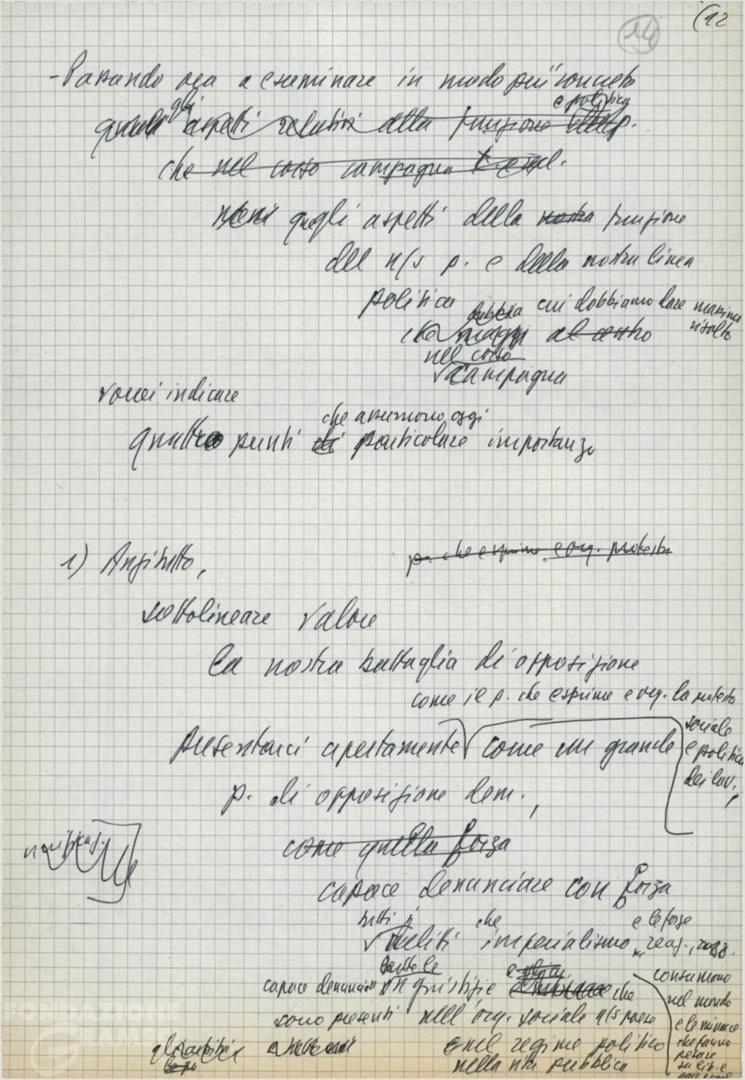 (12
14
- Passando ora a esaminare in modo più concreto
gli aspetti relativi alla funzione e politica
che nel corso campagna
quegli aspetti della nostra funzione
del n/s p. e della nostra linea
politica cui dobbiamo dare massimo risalto
nel corso
campagna
vorrei indicare
quattro punti di che assumono oggi particolare importanza
1) Anzitutto,
p. che esprime e org. protesta
sottolineare valore
la nostra battaglia di opposizione
come il p. che esprime e org. la protesta sociale e politica dei lav.,
presentarci apertamente come un grande
p. di opposizione dem.,
come quella forza
capace denunciare con forza
tutti i delitti che imperialismo e le forze reaz.,
consumano nel mondo e le minacce che fanno pesare su lib. e
capace denunciare tutte le ingiustizie che
sono presenti nell'org. sociale n/s paese
e nel regime politico
nella vita pubblica
FONDAZIONE